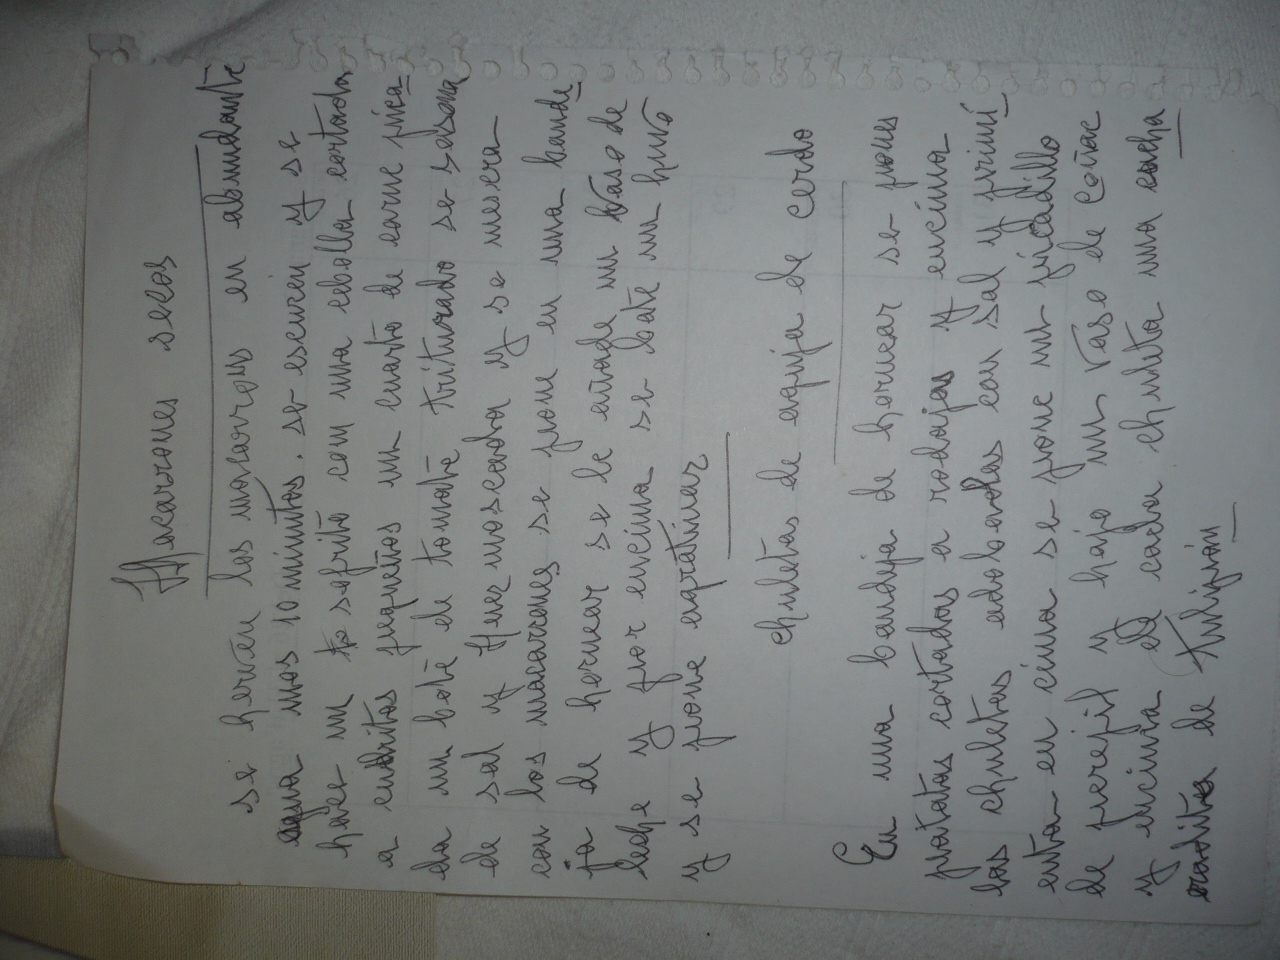 Macarrones secos
se hervén los macarrons en abundante
agua unos 10 minutos. se escurén y se
hacer un sofrito com una cebolla cortada
a cudritos pequeños un cuarto de carne pica-
da un bote de tomate triturado se sasona
de sal y nuez moscada y se mescra
con los macarrones se pone en una bande
ja de hornear se le añade un vaso de
leche y por encima se bate un huvo
y se pone agratinar
chuletas de aguja de cerdo
En una bandija de hornear se pones
patatas cortadas a rodajas y encima
las chuletas adobadas con sal y pimi-
enta en cima se pone un picadillo
de perejil y hajo un vaso de coñac
y encima de cada chuleta una cucha-
radita de Philipón